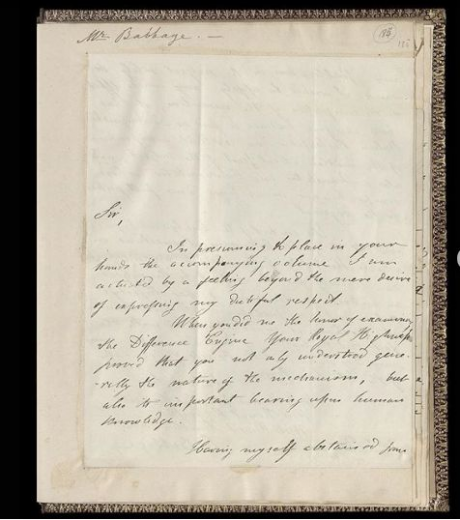 Mr. Babbage. —
Sir,
In presuming to place in your
hands the accompanying volume I am
actuated by a feeling beyond the mere desire
of expressing my dutiful respect.
When you did me the honor of examining
the Difference Engine Your Royal Highness
proved that you not only understood gene-
-rally the nature of the mechanism, but
also its important bearing upon human
knowledge.
Having myself abstained from